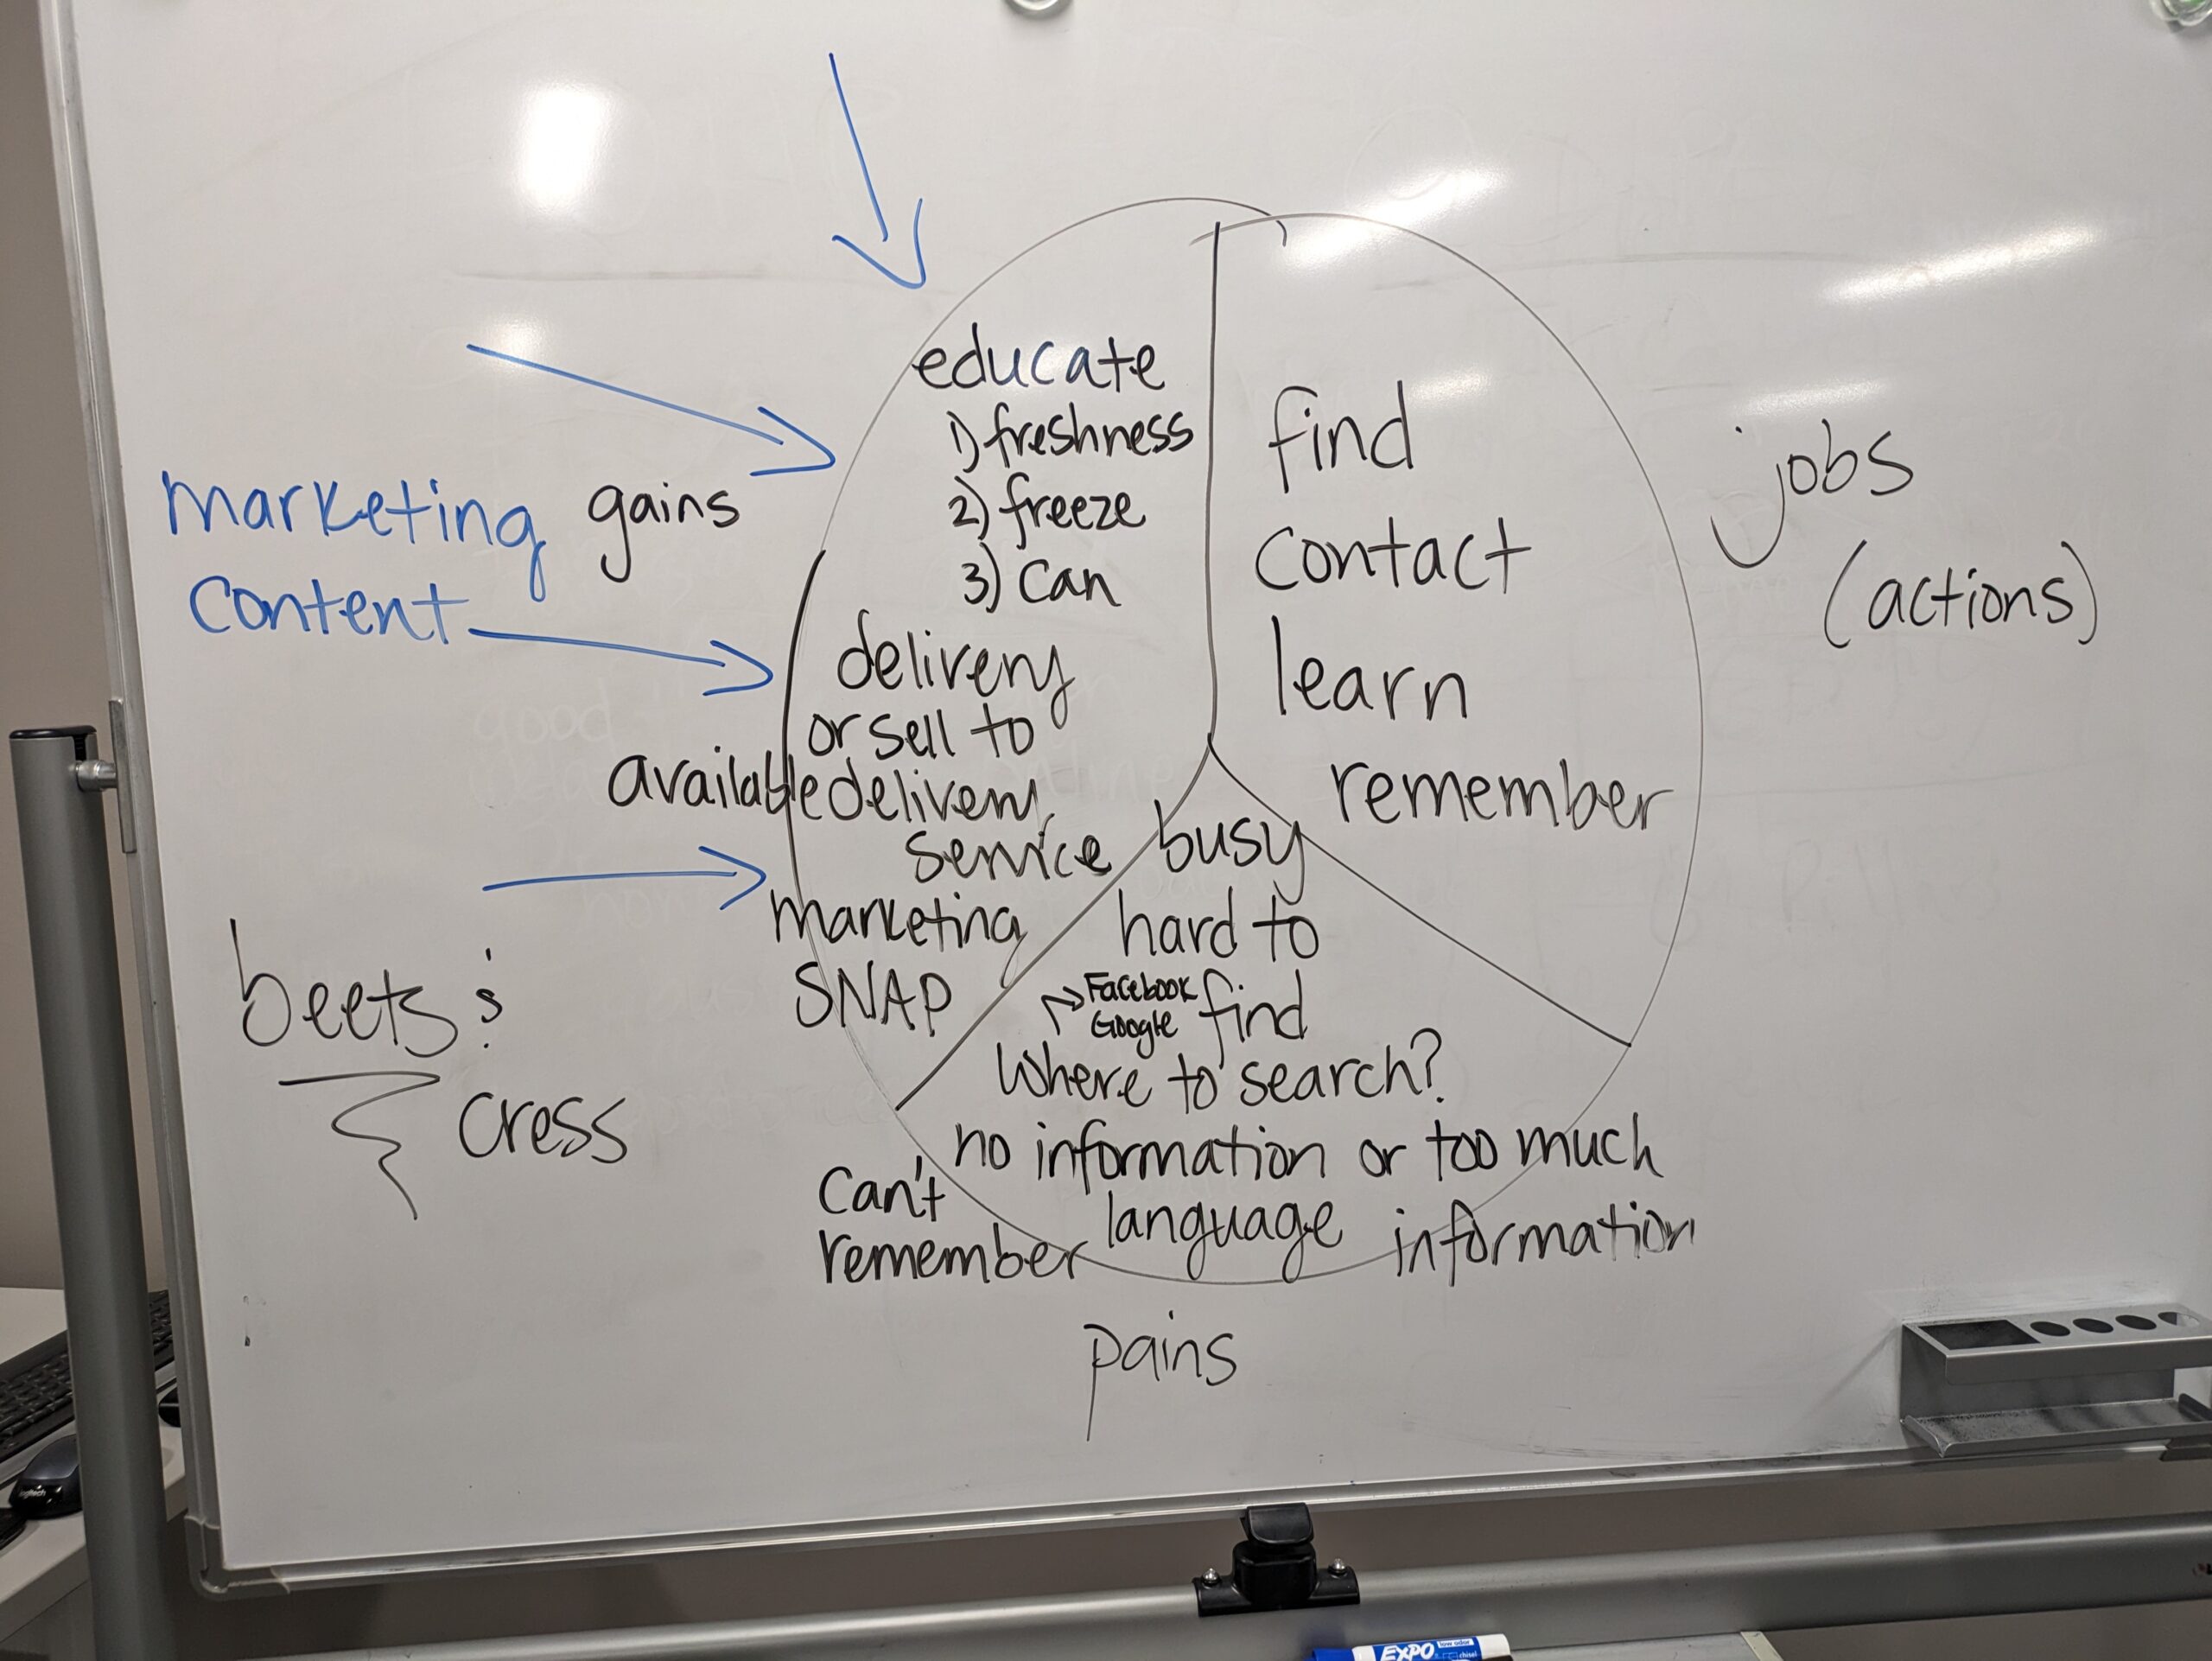 educate
1) freshness
2) freeze
3) Can
delivery
or sell to
available delivery
service
marketing
SNAP
find
contact
learn
remember
jobs
(actions)
marketing
content
gains
busy
hard to
find
Facebook
Google
Where to search?
no information or too much
information
language
Can't
remember
pains
beets
cress
EXPO
low odor
chisel
logitech